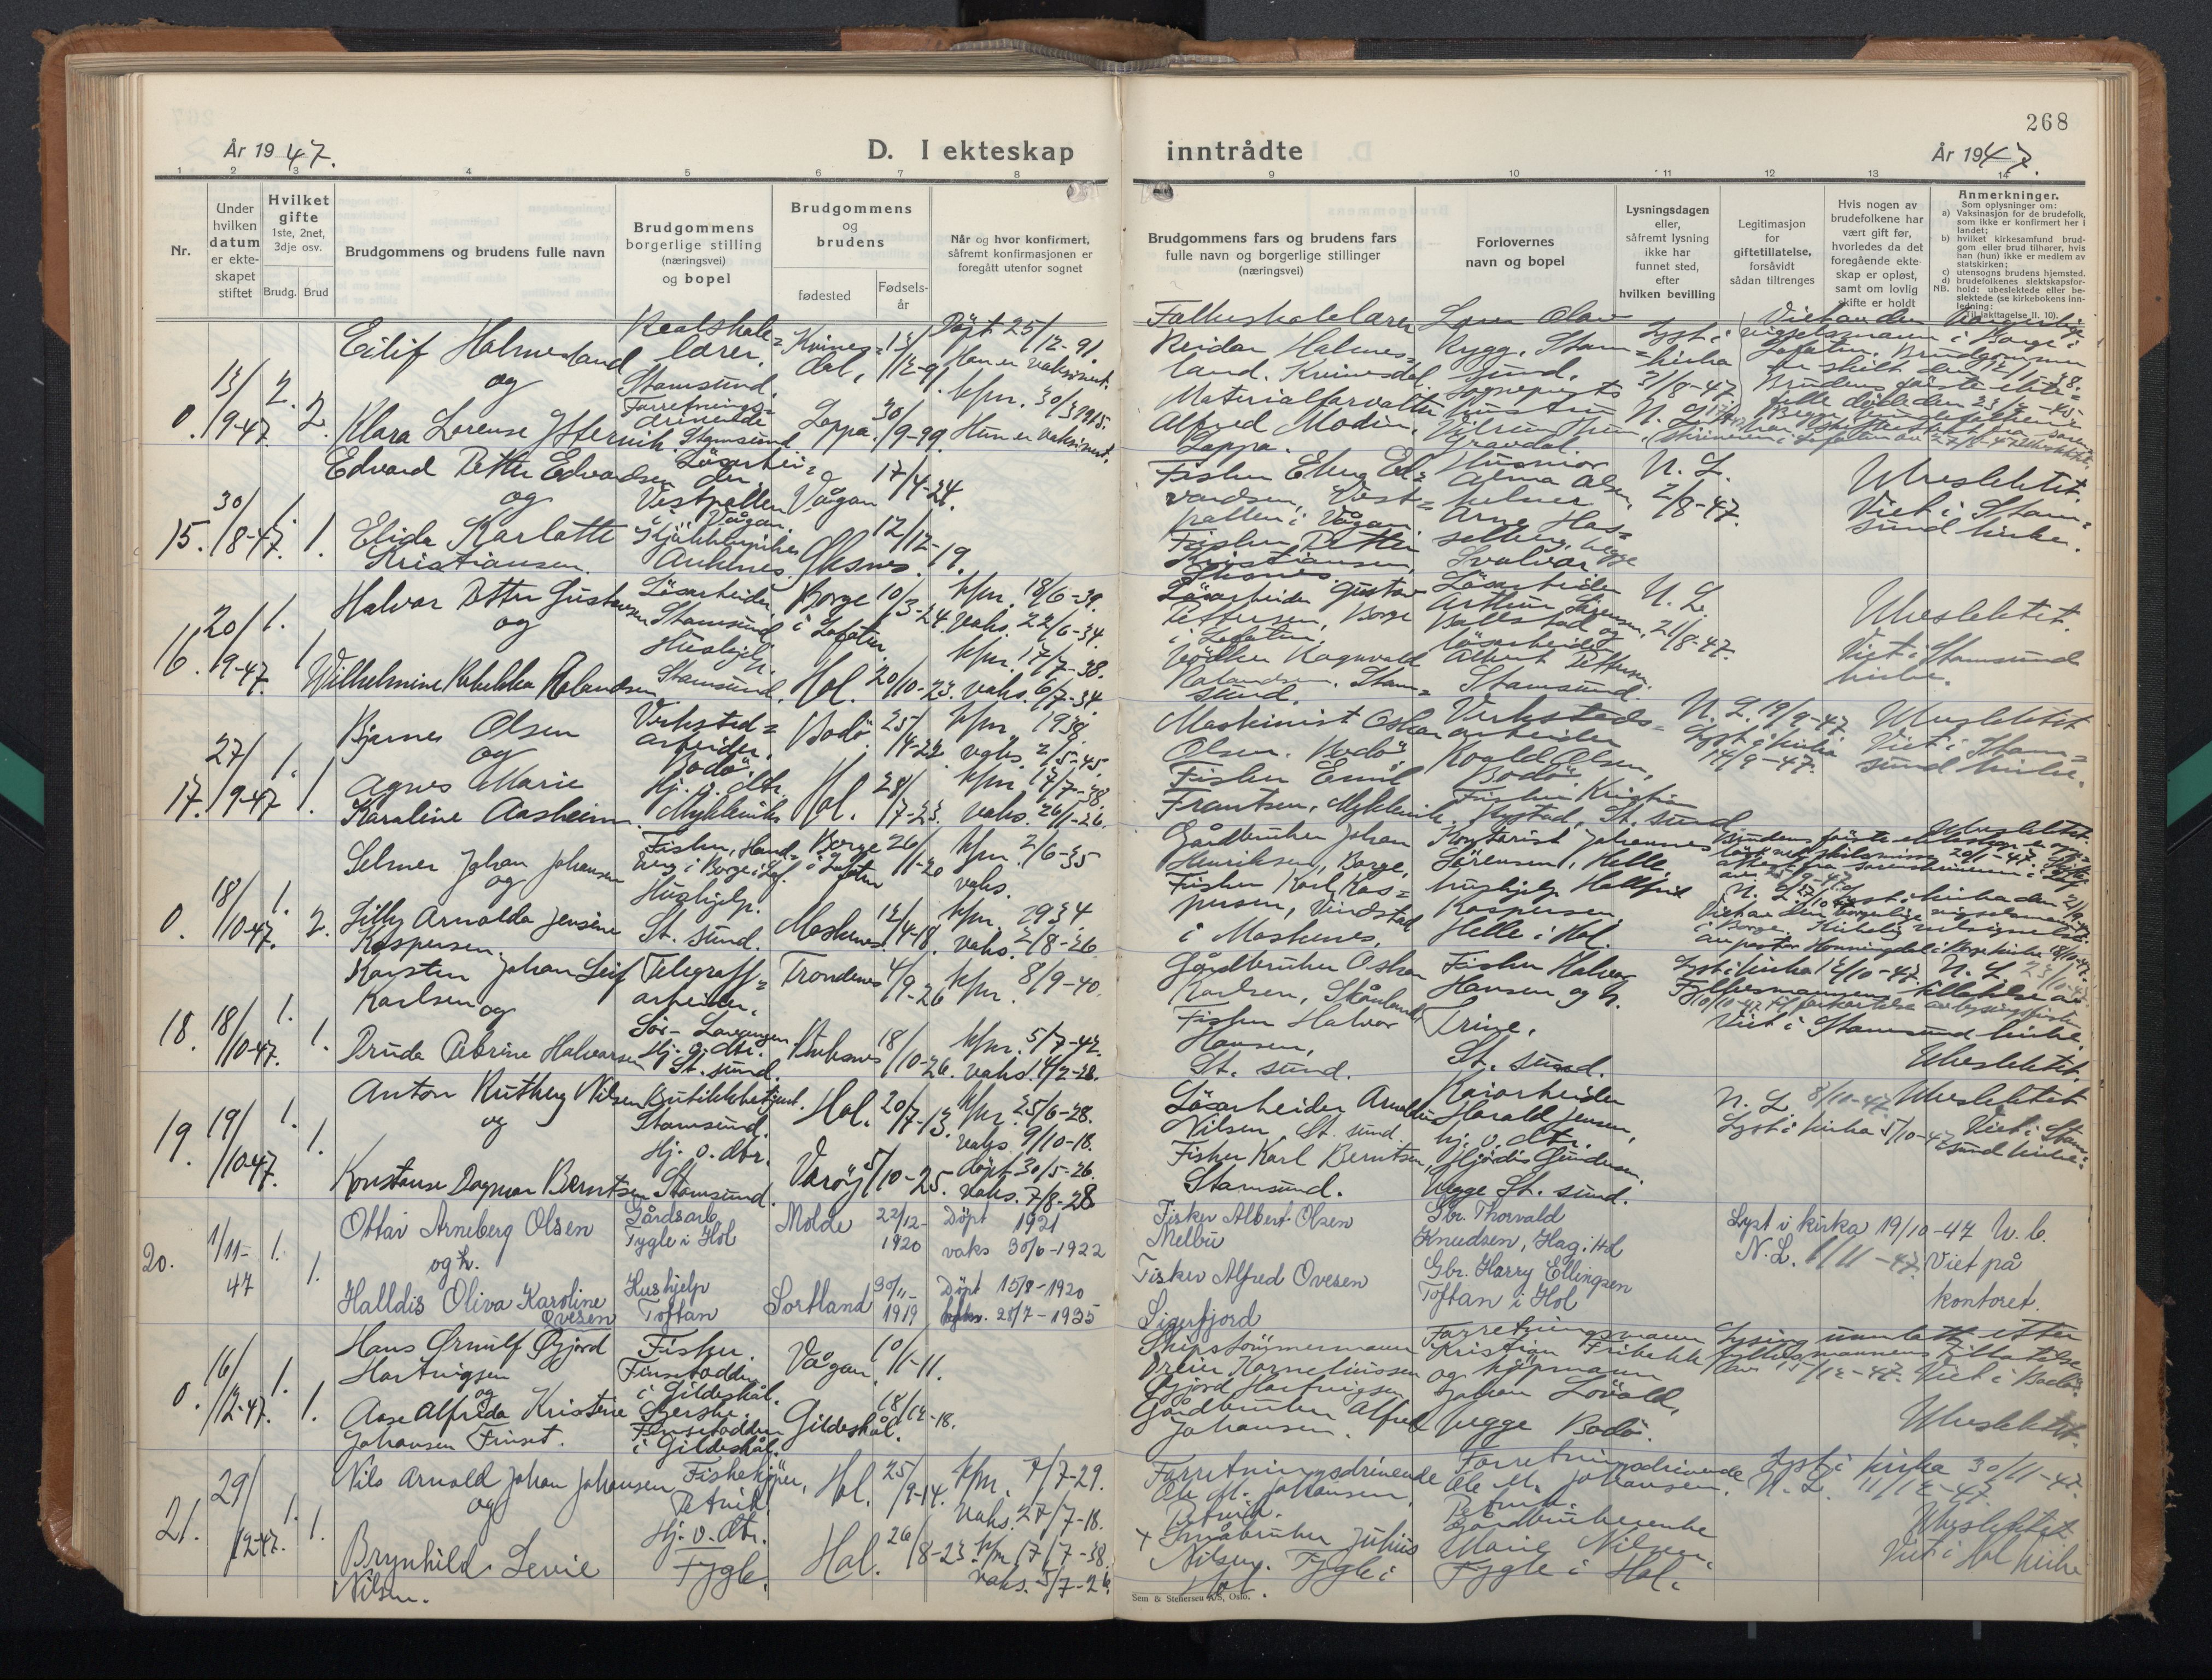 268
År 1947.
D. I ekteskap inntrådte
År 1947.
1 2 3 4 5 6 7 8 9 10 11 12 13 14
Nr.
Under hvilken datum er ekteskapet stiftet
Hvilket gifte 1ste, 2net, 3dje osv.
Brudg. Brud
Brudgommens og brudens fulle navn
Brudgommens borgerlige stilling (næringsvei) og bopel
Brudgommens og brudens
fødested
Fødsels-år
Når og hvor konfirmert, såfremt konfirmasjonen er foregått utenfor sognet
Brudgommens fars og brudens fars fulle navn og borgerlige stillinger (næringsvei)
Forlovernes navn og bopel
Lysningsdagen eller, såfremt lysning ikke har funnet sted, efter hvilken bevilling
Legitimasjon for giftetillatelse, forsåvidt sådan tiltrenges
Hvis nogen av brudefolkene har vært gift før, hvorledes da det foregående ekteskap er opløst, samt om lovlig skifte er holdt
Anmerkninger.
Som oplysninger om:
a) Vaksinasjon for de brudefolk, som ikke er konfirmert her i landet;
b) hvilket kirkesamfund brudgom eller brud tilhører, hvis han (hun) ikke er medlem av statskirken;
c) utensogns brudens hjemsted.
d) brudefolkenes slektskapsforhold: ubeslektede eller beslektede (se kirkebokens innledning:
NB. Til iakttagelse II. 10).
0. 13/9-47 2. 2.
Eilif Holmesland
og
Klara Lorense
Realskolelærer,
Stamsund.
Forretningsdrivende
Stamsund
Kvinesdal, 13/12-91.
Loppa. 30/9-99.
Døpt 25/12-91.
Han er vaksinert.
kfm. 30/3 1915.
Hun er vaksinert.
Folkeskolelærer
Reidar Holmesland. Kvinesdal
Materialforvalter
Alfred Modin,
Loppa.
Rygg, Stamsund.
Gravdal.
Lyst i kirka
31/8-47
15. 30/8-47. 1. 1.
Edvard Petter Edvardsen
og
Elida Karlotte
Kristiansen.
Løsarbeider,
Vestpollen
i Vågan.
Vågan 17/4-24.
Øksnes. 12/12-19.
Fisker
Edvardsen, Vestpollen i Vågan.
Fisker Petter
Kristiansen,
Øksnes.
Alma Olsen,
Arne
begge
Svolvær
N. L.
2/8-47.
Ubeslektet.
Viet i Stamsund kirke.
16. 20/9-47. 1. 1.
Halvor Petter Gustavsen
og
Wilhelmine Rebekka Rolandsen
Løsarbeider,
Stamsund
Hushjelp.
Stamsund.
Borge i Lofoten. 10/3-24.
Hol. 20/10-23.
kfm. 18/6-39.
vaks. 22/6-34.
kfm. 17/7-38.
vaks. 6/7-34
Løsarbeider Gustav
Pettersen, Borge
i Lofoten.
Ragnvald
Rolandsen. Stamsund.
Løsarbeider
Ballstad og
løsarbeider
Albert Pettersen.
Stamsund.
N. L.
21/8-47.
Ubeslektet.
Viet i Stamsund
kirke.
17. 27/9-47 1. 1.
Bjarnes Olsen
og
Agnes Marie
Karoline Aasheim
Verkstedarbeider.
Bodø.
Hj. v. dtr.
Myklevik
Bodø. 25/4-22.
Hol. 28/7-23.
kfm. 1938.
vaks. 2/5-45.
kfm. 17/7-38.
vaks. 26/1-26.
Maskinist Oskar
Olsen. Bodø.
Fisker Emil
Frantsen, Myklevik.
Verkstedsarbeider
Roald Olsen,
Bodø.
Fisker Kristian
Nystad, St. sund
N. L. 19/9-47.
Lyst i kirka
14/9-47.
Ubeslektet
Viet i Stamsund kirke.
0. 18/10-47. 1. 2.
Selmer Johan Johansen
og
Lilly Arnolda Jensine
Kaspersen.
Hushjelp.
St. sund.
Borge i Lofoten 26/11-20
Moskenes. 12/4-18.
kfm. 2/6-35
vaks.
kfm. 1934.
vaks. 2/8-26.
Gårdbruker Johan
Henriksen, Borge.
Fisker Karl Kaspersen, Vindstad
i Moskenes.
Kontorist Johannes
Sørensen, Helle,
hushjelp Hallfrid
Kaspersen,
Helle i Hol.
Ubeslektet.
18. 18/10-47. 1. 1.
Karsten Johan Leif
Karlsen og
Pruda Abrine Halvorsen
Telegrafarbeider.
Sør-Lavangen
Hj. v. dtr.
St. sund.
Trondenes 4/9-26
Buksnes 18/10-26.
kfm. 8/9-40.
kfm. 5/7-42.
vaks. 14/2-28.
Gårdbruker Oskar
Karlsen, Skånland
Fisker Halvor
Hansen,
St. sund.
Fisker Halvor
Hansen og h.
Trine,
St. sund.
Lyst i kirka 12/10-47. N. L.
Viet i Stamsund kirke.
Ubeslektet.
19. 19/10-47. 1. 1.
Anton Rutberg Nilsen
og
Konstanse Dagmar Berntsen
Butikkbetjent.
Stamsund.
Hj. v. dtr.
Stamsund.
Hol. 20/7-13.
Værøy 5/10-25.
kfm. 25/6-28.
vaks. 9/10-18.
døpt 30/5-26.
vaks. 7/8-28
Løsarbeider Arnoldus
Nilsen, St. sund.
Fisker Karl Berntsen,
Stamsund.
Kaiarbeider
Harald Jensen,
hj. v. dtr.
Hjørdis Gundersen
begge St. sund.
N. L. 8/10-47.
Lyst i kirka 5/10-47
Ubeslektet
Viet i Stamsund kirke.
20. 1/11-47 1. 1.
Ottar Arneberg Olsen
og h.
Halldis Oliva Karoline
Ovesen
Gårdsarb.
Tygle i Hol
Hushjelp
Toftan
Molde 22/12-1920
Sortland 30/11-1919
Døpt 1921
vaks 30/6-1922
Døpt 15/8-1920
vaks. 25/7-1935
Fisker Albert Olsen
Melbu
Fisker Alfred Ovesen
Sigerfjord
Gbr. Thorvald
Knudsen, Hag i Hol
Gbr. Harry Ellingsen
Toftan i Hol
Lyst i kirka 19/10-47 U. b.
N. L. 1/11-47. Viet på
kontoret.
0. 16/12-47. 1. 1.
Hans Ørnulf Øgjord
Hartvigsen
og
Aase Alfreda Kristine
Johansen Finset.
Fisker.
Finsetodden
i Gildeskål.
Finsetodden
i Gildeskål.
Vågan 10/11-11.
Gildeskål. 18/12-18.
Skipstømmermann
Peier Korneliussen
Øgjord Hartvigsen
Gårdbruker Alfred
Johansen.
Forretningsmann
Kristian Fribekk
og kjøpmann
Johan Løvold,
begge Bodø.
av 15/12-47. Viet i Bodø.
Ubeslektet.
21. 29/12-47. 1. 1.
Nils Arnold Johan Johansen
og
Brynhild Levie
Nilsen.
Fiskekjøper,
Petvik.
Hj. v. dtr.
Tygle.
Hol. 25/9-14.
Hol. 26/8-23.
kfm. 7/7-29.
vaks. 27/7-18.
kfm 17/7-38.
vaks. 5/7-26.
Forretningsdrivende
Ole M. Johansen,
Petvik.
+ Småbruker Julius
Nilsen. Tygle i
Hol.
Forretningsdrivende
Ole M. Johansen.
Petvik.
Gårdbrukerenke
Marie Nilsen.
Tygle i Hol.
Lyst i kirka 30/11-47.
N. L. 11/12-47.
Ubeslektet.
Viet i Hol kirke
Sem & Stenersen A/S, Oslo.